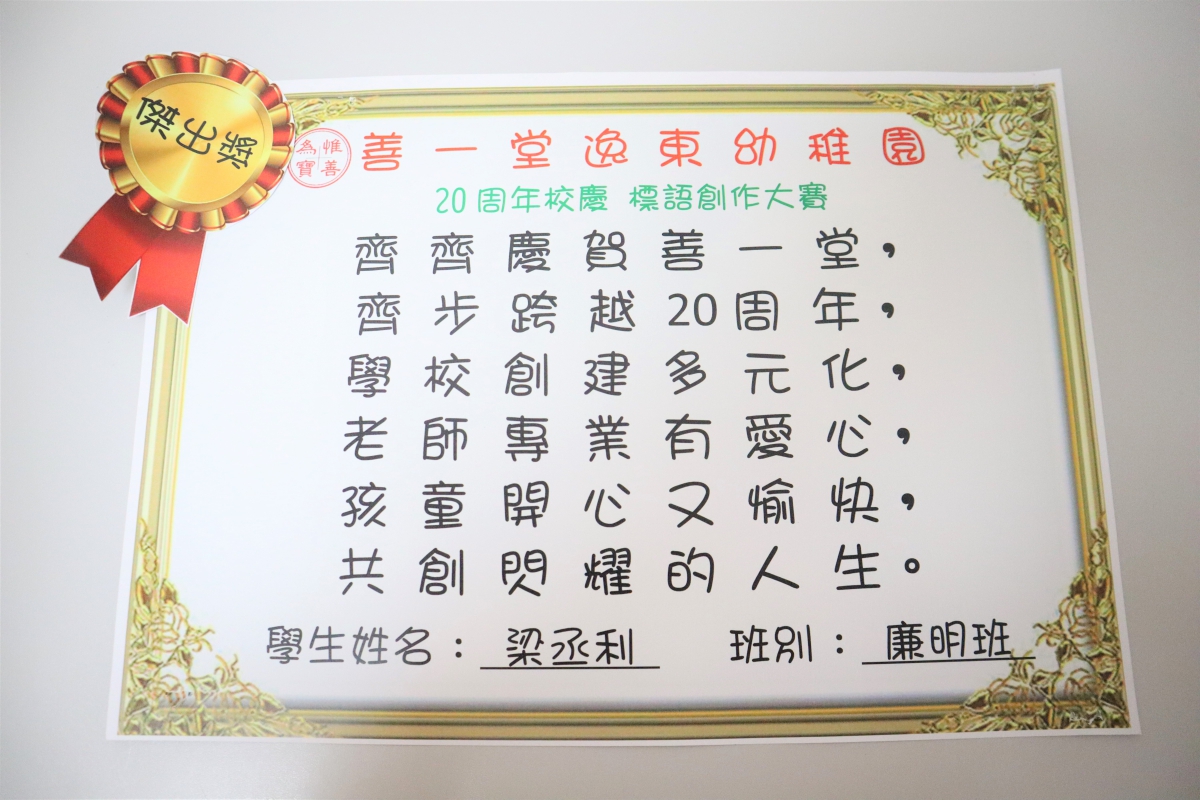 傑出獎
惟善
為寶
善一堂逸東幼稚園
20周年校慶 標語創作大賽
齊齊慶賀善一堂，
齊步跨越20周年，
學校創建多元化，
老師專業有愛心，
孩童開心又愉快，
共創閃耀的人生。
學生姓名：梁丞利 班別：廉明班